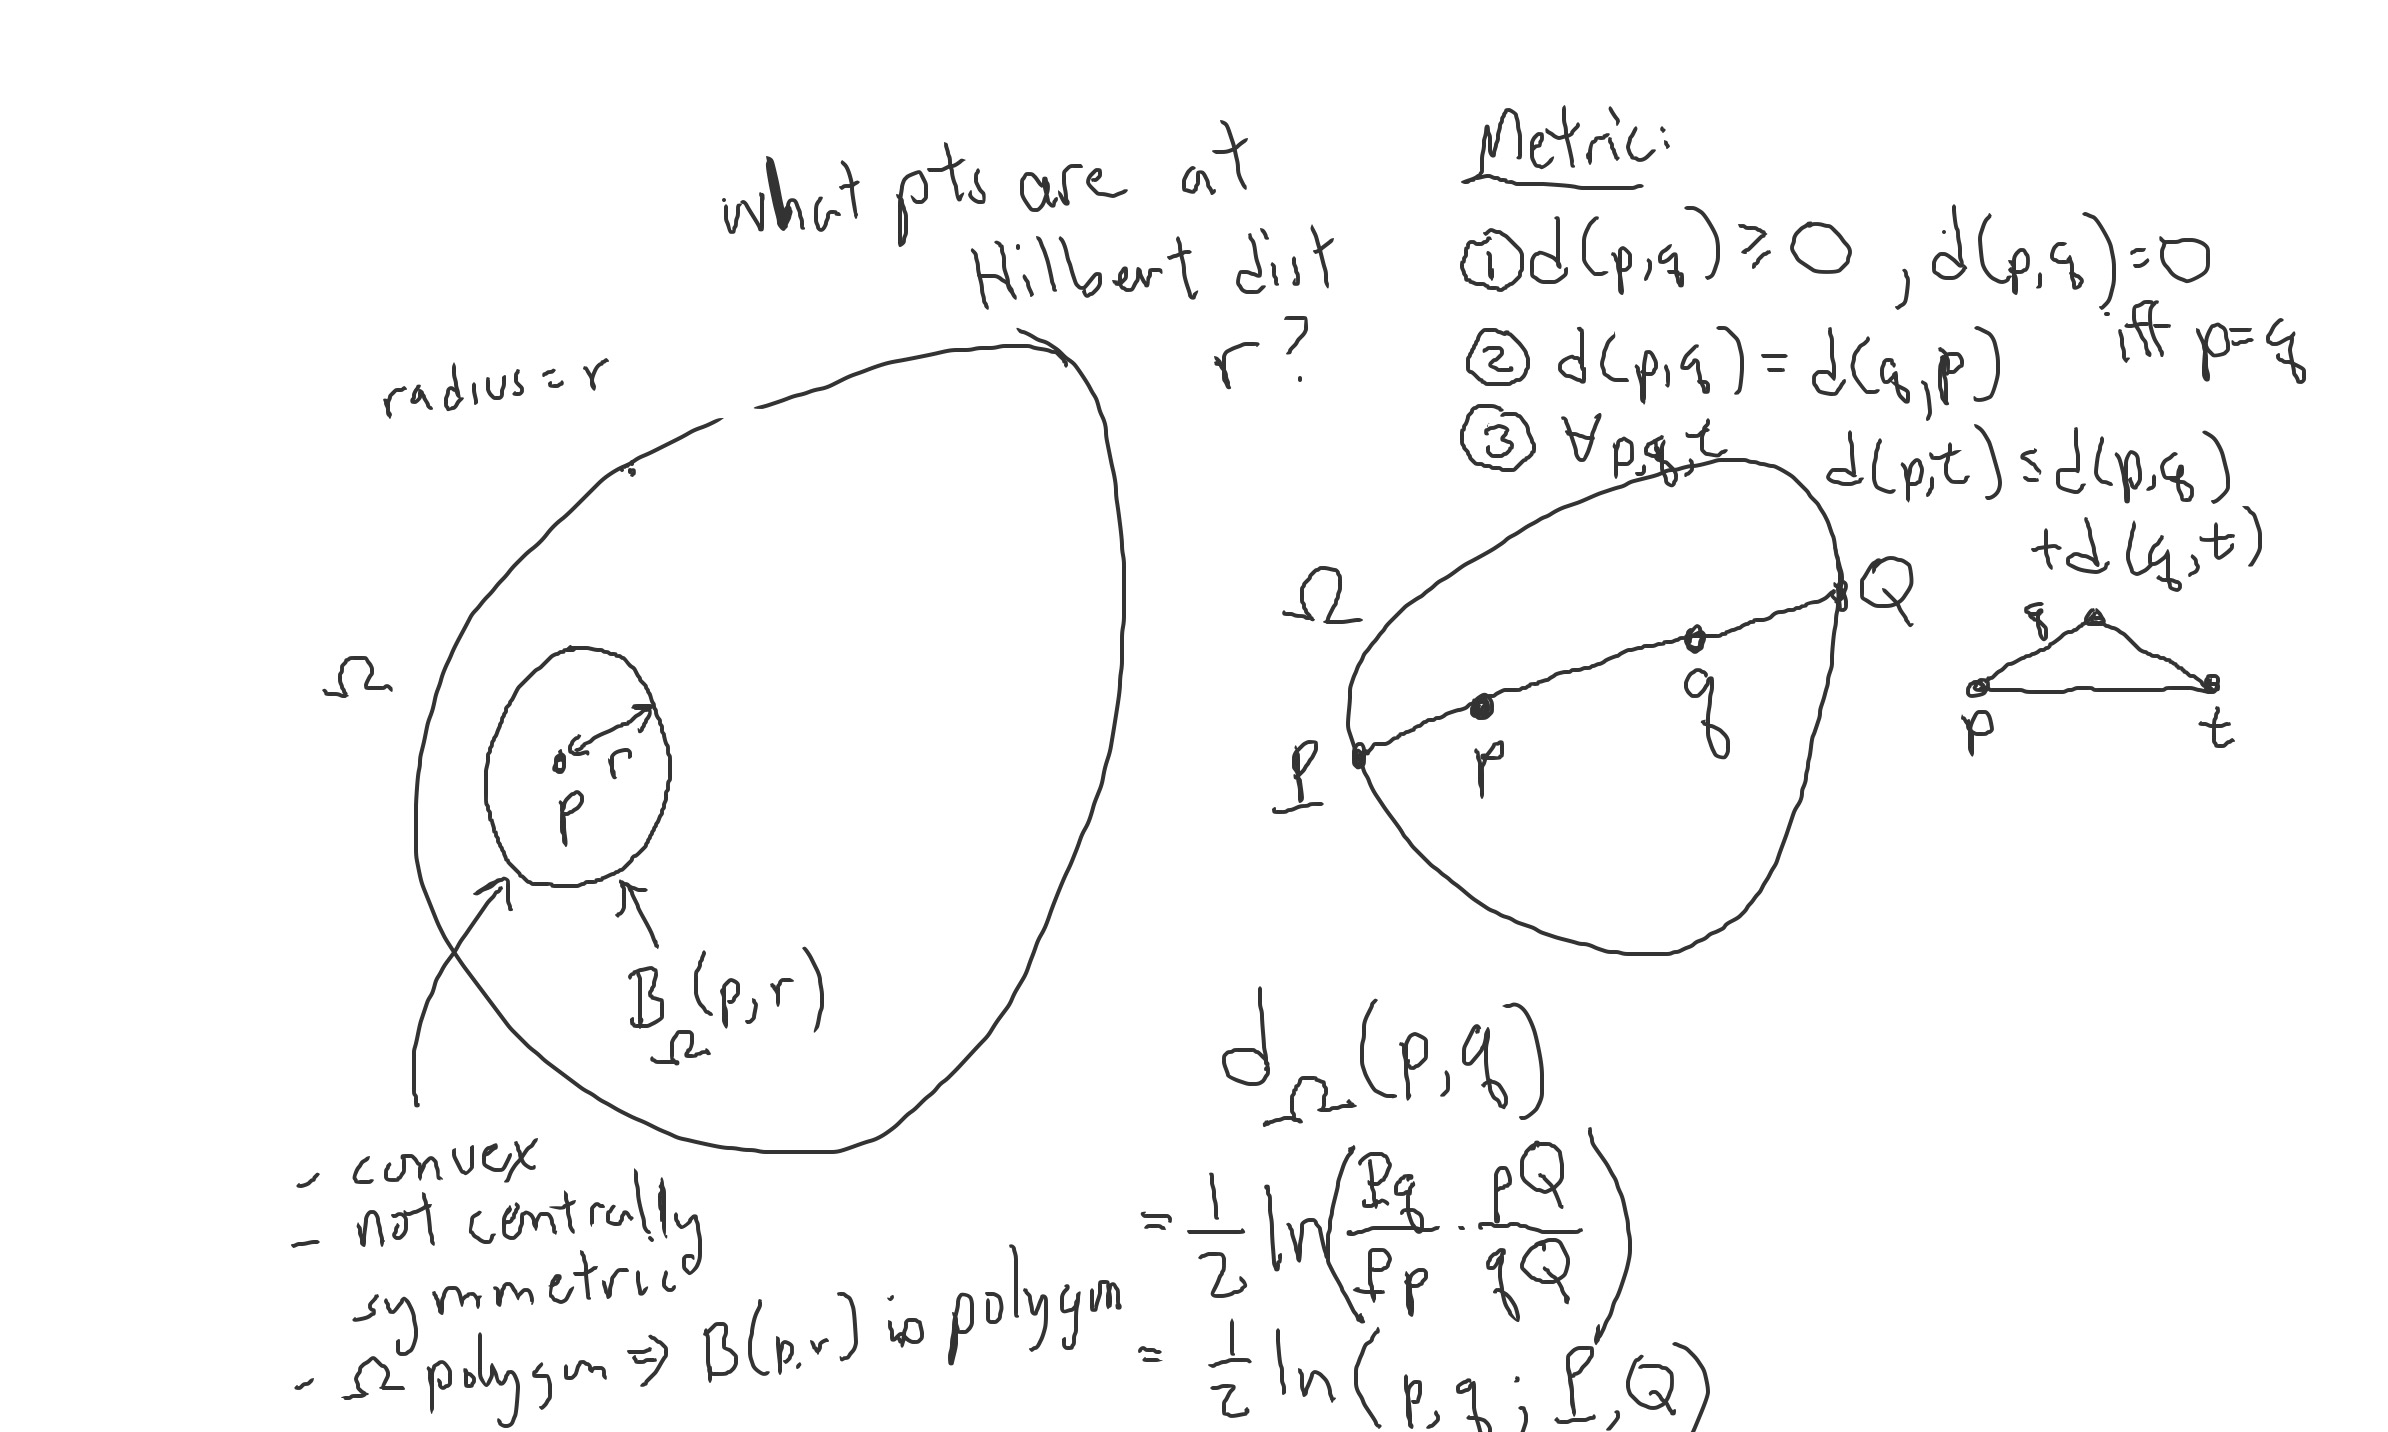 what pts are at
Hilbert dist
r?
radius = r
Ω
r
p
B_Ω(p,r)
- convex
- not centrally
symmetric
- Ω polygon ⇒ B(p,r) is polygon
Metric:
① d(p,q) ≥ 0, d(p,q) = 0
iff p = q
② d(p,q) = d(q,p)
③ ∀p,q,t d(p,t) ≤ d(p,q)
+ d(q,t)
Ω
Q
q
p
P
q
p
t
d_Ω(p,q)
= 1/2 ln(Pq/Pp · pQ/qQ)
= 1/2 ln(p,q; P,Q)